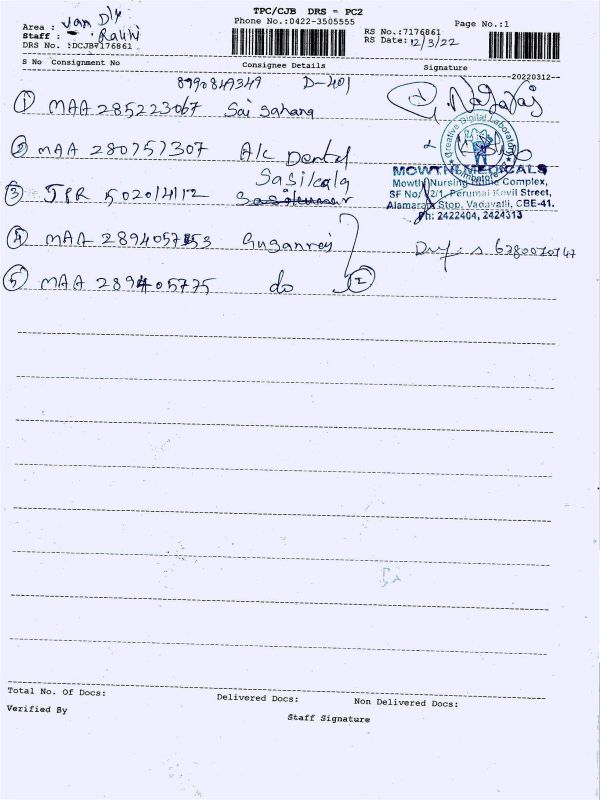 TPC/CJB DRS = PC2
Area : Van Dly
Phone No.:0422-3505555
Page No.:1
Staff :
RS No.:7176861
DRS No. :DCJB7176861
RS Date: 12/3/22
S No Consignment No Consignee Details Signature
20220312
8990849349 D-401
① MAA 285223067 Sai Sahana
② MAA 280757307 A/c Dental
Creative Digital Laboratory
Coimbatore
Sasikala
③ JPR 502014112
MOWTHI MEDICALS
Mowthi Nursing Home Complex,
SF No/ 2/1, Perumal Kovil Street,
Alamaram Stop, Vadavalli, CBE-41.
Ph: 2422404, 2424313
④ MAA 289405753 Suganraj
6280070747
⑤ MAA 289405775 do
Total No. Of Docs: Delivered Docs: Non Delivered Docs:
Verified By Staff Signature